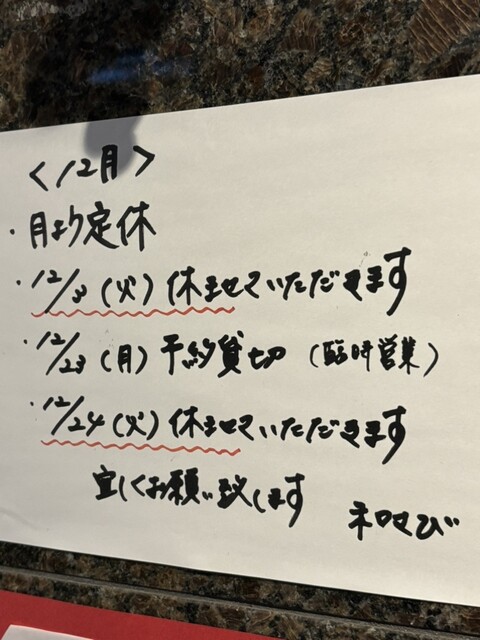 <12月>
・月よう定休
・12/3 (火) 休ませていただきます
・12/23 (月) 予約貸切 (臨時営業)
・12/24 (火) 休ませていただきます
宜しくお願い致します